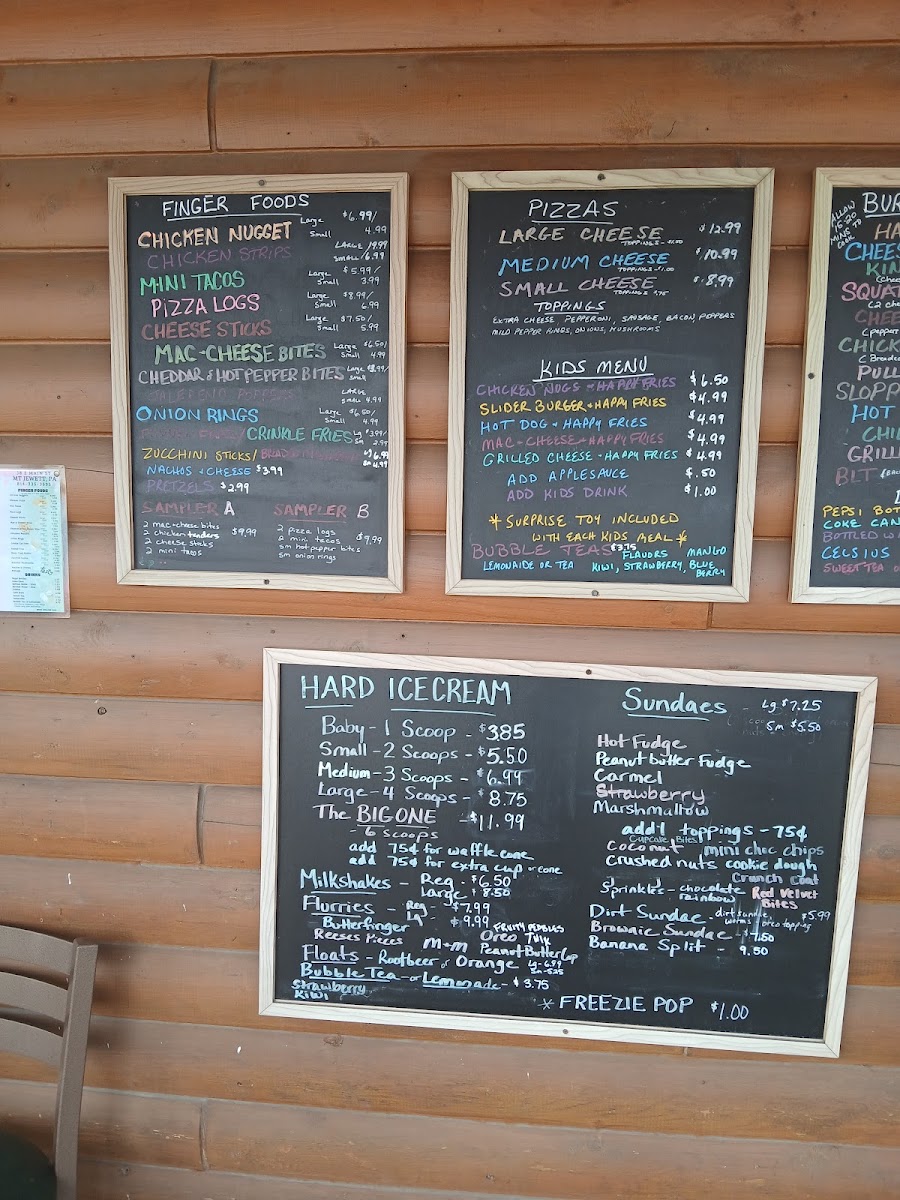 FINGER FOODS
CHICKEN NUGGET Large $6.99/
Small 4.99
CHICKEN STRIPS LARGE/
SMALL/6.99
MINI TACOS Large $5.99/
Small 3.99
PIZZA LOGS Large $8.99/
Small 6.99
CHEESE STICKS Large $7.50/
Small 5.99
MAC-CHEESE BITES Large $6.50/
Small 4.99
CHEDDAR & HOT PEPPER BITES Large
Small 4.99
LARGE
Small 4.99
ONION RINGS Large $6.50/
Small 4.99
CRINKLE FRIES Lg $3.99/
Sm 2.99
ZUCCHINI STICKS/ 6.99
4.99
NACHOS & CHEESE $3.99
PRETZELS $2.99
SAMPLER A
2 mac+cheese bites
2 chicken tenders $9.99
2 cheese sticks
2 mini tacos
SAMPLER B
2 pizza logs
2 mini tacos $9.99
sm hot pepper bites
sm onion rings
PIZZAS
LARGE CHEESE $12.99
TOPPINGS
MEDIUM CHEESE $10.99
TOPPINGS $1.00
SMALL CHEESE $8.99
TOPPINGS .75
TOPPINGS
EXTRA CHEESE PEPPERONI, SAUSAGE, BACON, PEPPERS
MILD PEPPER RINGS, ONIONS, MUSHROOMS
KIDS MENU
CHICKEN NUGS & HAPPY FRIES $6.50
SLIDER BURGER & HAPPY FRIES $4.99
HOT DOG & HAPPY FRIES $4.99
MAC-CHEESE & HAPPY FRIES $4.99
GRILLED CHEESE & HAPPY FRIES $4.99
ADD APPLESAUCE $.50
ADD KIDS DRINK $1.00
* SURPRISE TOY INCLUDED
WITH EACH KIDS MEAL *
BUBBLE TEAS $3.75 FLAVORS MANGO
LEMONAIDE OR TEA KIWI, STRAWBERRY, BLUE
BERRY
ALLOW
15-20
MINS TO
COOK
BUR
HA
CHEES
KIN
SQUAT
CHEE
CHICK
PULL
SLOPP
HOT
CHI
GRILL
BLT
PEPSI BOT
COKE CAN
BOTTLED W
CELSIUS
SWEET TEA O
MT JEWETT, PA
FINGER FOODS
HARD ICECREAM
Baby - 1 Scoop - $3.85
Small - 2 Scoops - $5.50
Medium - 3 Scoops - $6.99
Large - 4 Scoops - $8.75
The BIG ONE - $11.99
- 6 SCOOPS
add 75¢ for waffle cone
add 75¢ for extra cup or cone
Milkshakes - Reg - $6.50
Large - $8.50
Flurries - Reg - $7.99
Lg - $9.99
Butterfinger FRUITY PEBBLES
Reeses Pieces M+M Oreo Twix
Peanut Butter Cup
Floats - Rootbeer or Orange Lg - 6.99
Sm - 5.25
Bubble Tea - or Lemonade - $3.75
Strawberry
Kiwi
Sundaes - Lg $7.25
Sm $5.50
Hot Fudge
Peanut butter Fudge
Carmel
Strawberry
Marshmallow
add'l toppings - 75¢
Cupcake Bites
Coconut mini choc chips
Crushed nuts cookie dough
Crunch coat
Sprinkles - chocolate Red Velvet
rainbow Bites
Dirt Sundae - dirt sundae $5.99
worms oreo topping
Brownie Sundae - $7.50
Banana Split - 9.50
* FREEZIE POP $1.00